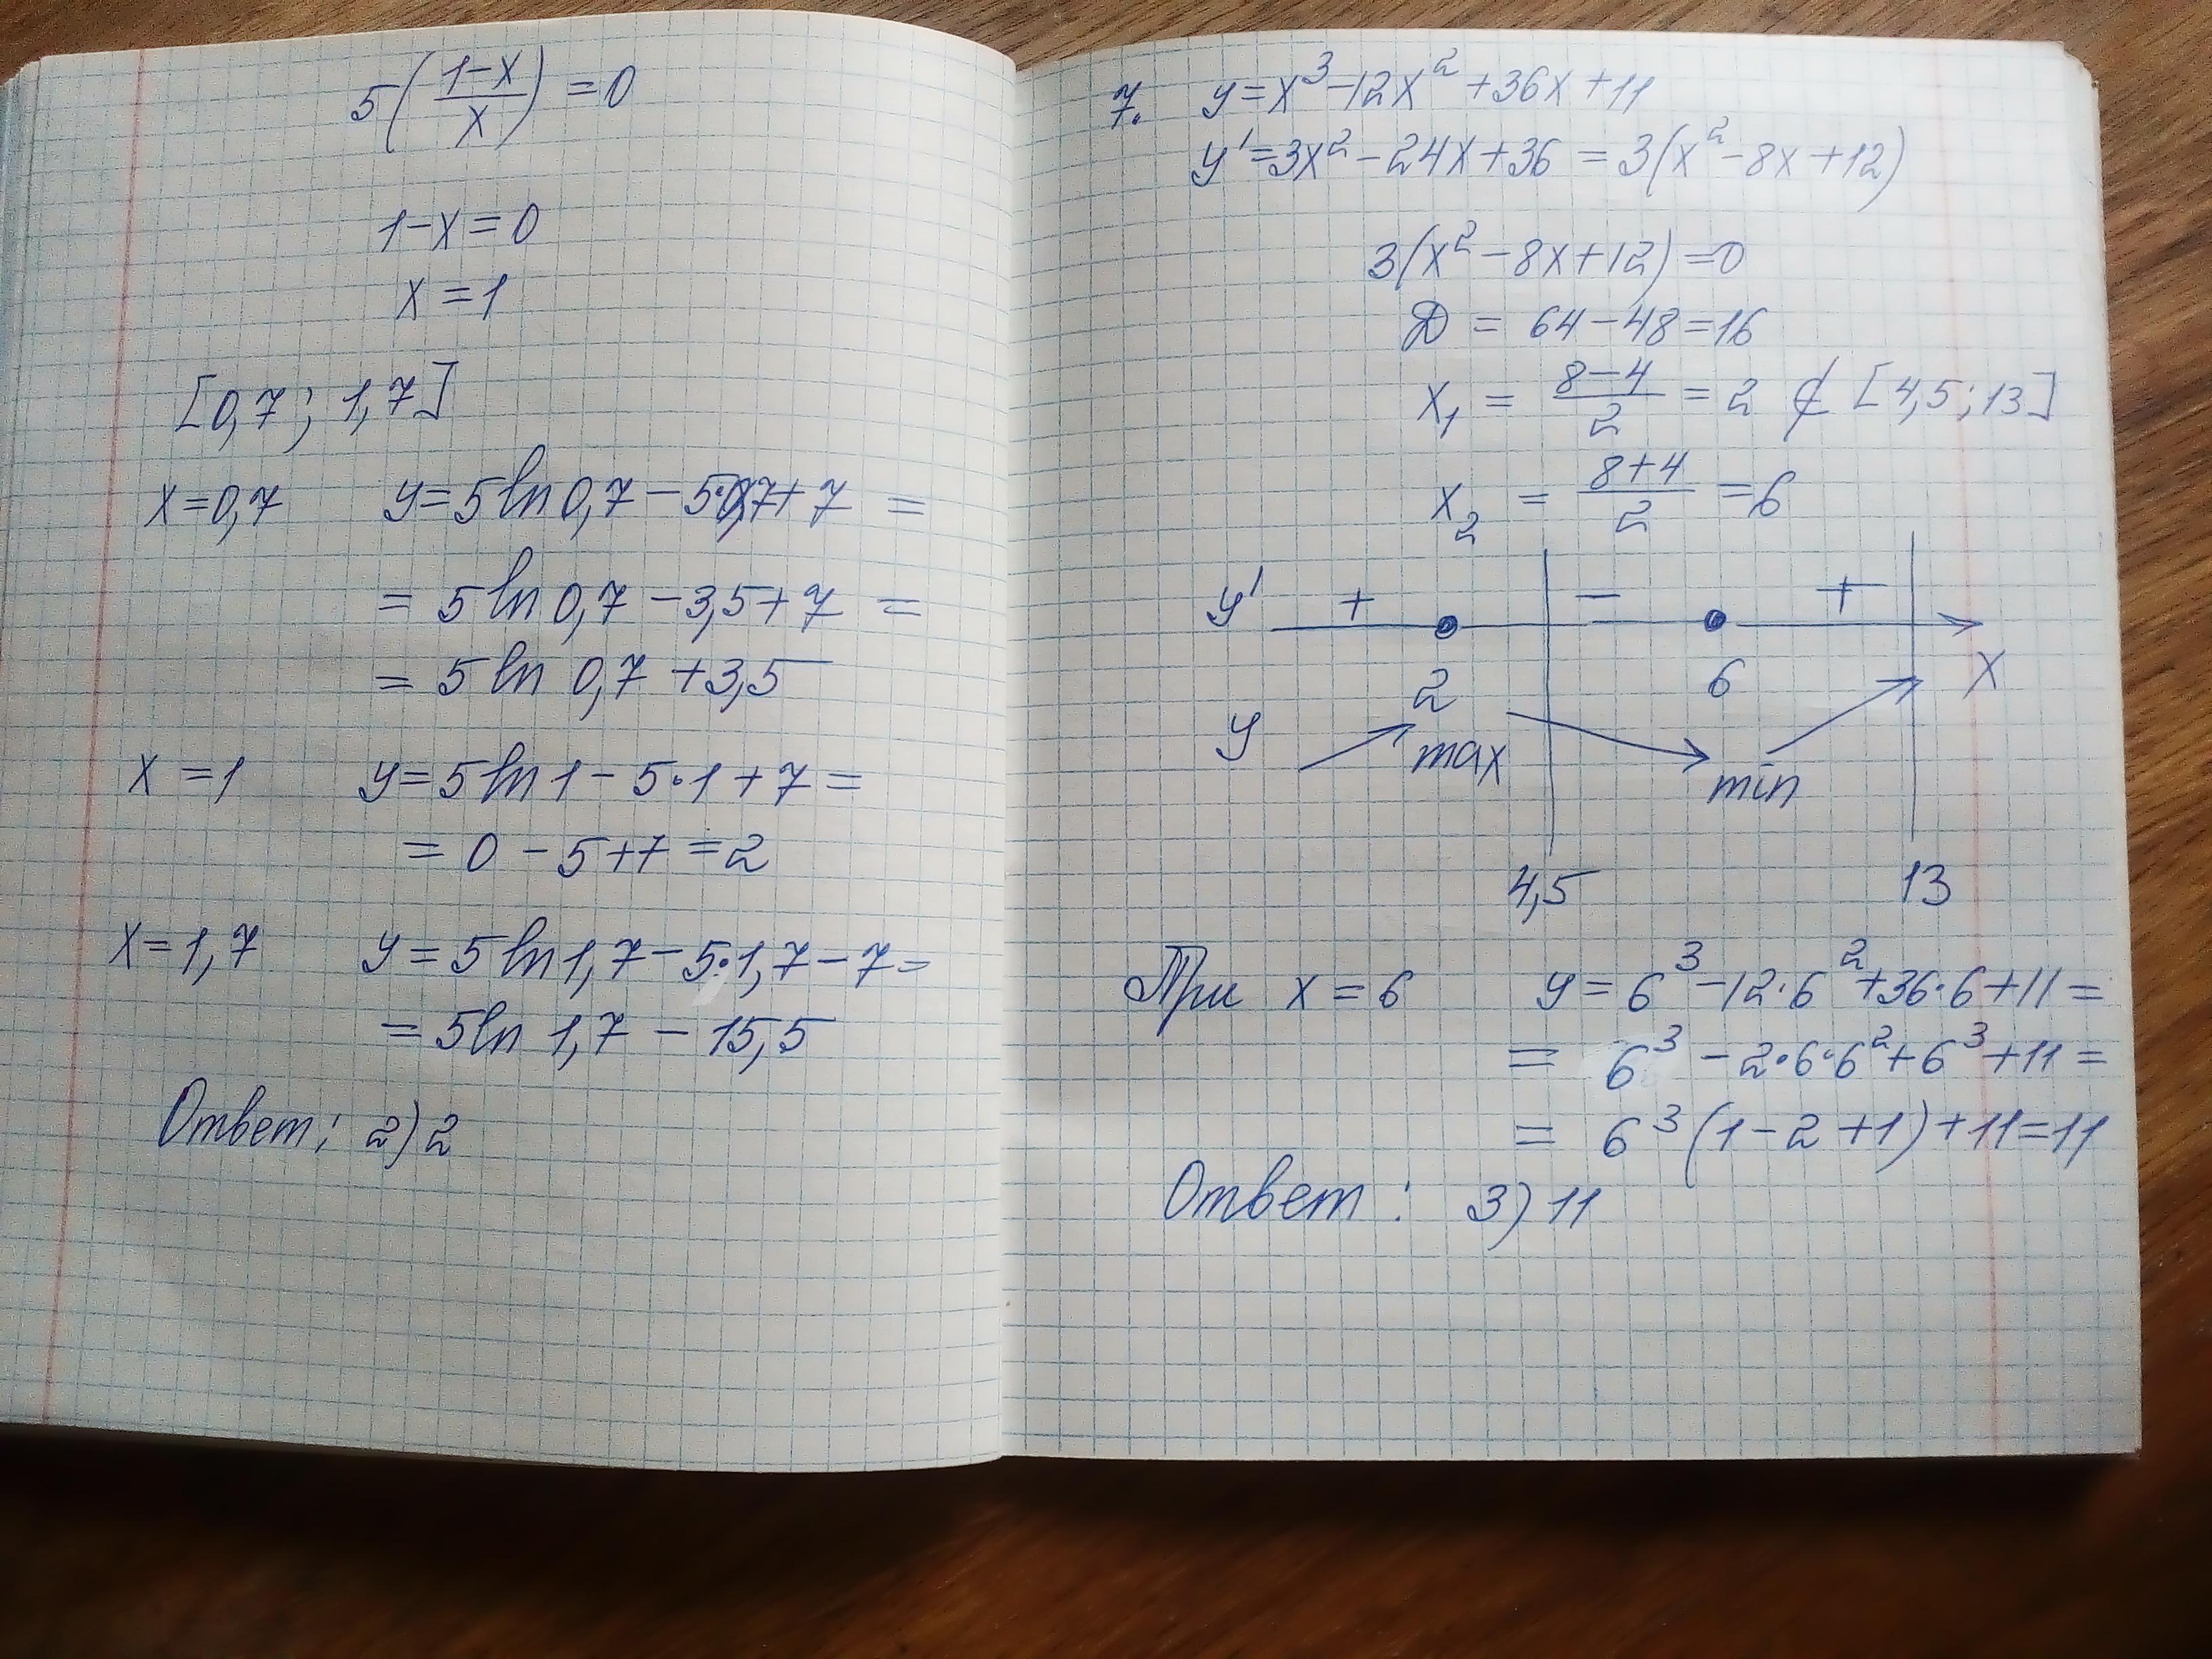 5(1-x/x) = 0
1-x=0
x=1
[0,7; 1,7]
x=0,7 y=5ln0,7-5·0,7+7 =
= 5ln0,7-3,5+7 =
= 5ln 0,7 +3,5
x=1 y=5ln1-5·1+7=
= 0-5+7=2
x=1,7 y=5ln1,7-5·1,7-7=
= 5ln 1,7 - 15,5
Ответ: 2) 2
7. y=x³-12x²+36x+11
y'=3x²-24x+36=3(x²-8x+12)
3(x²-8x+12)=0
D = 64-48=16
x₁ = 8-4/2 = 2 ⊄ [4,5;13]
x₂ = 8+4/2 = 6
y' + - +
2 6 x
y max min
4,5 13
При x=6 y=6³-12·6²+36·6+11=
= 6³-2·6·6²+6³+11=
= 6³(1-2+1)+11=11
Ответ: 3) 11